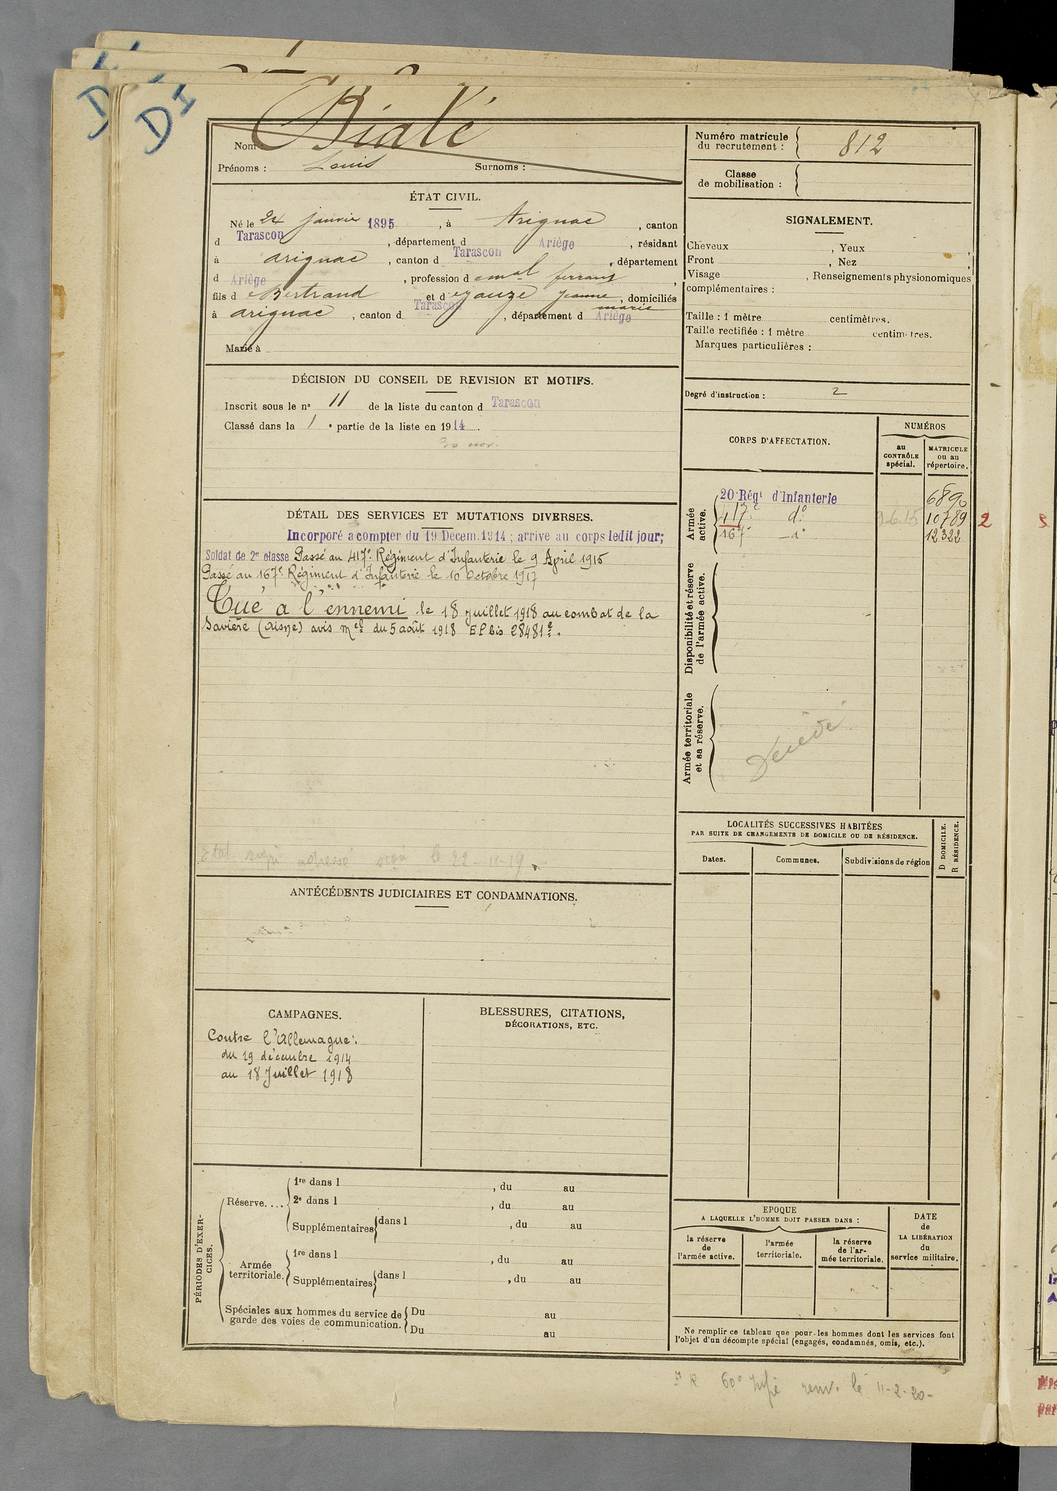 DI
DI
Nom Bialé
Prénoms : Louis Surnoms :
Numéro matricule du recrutement : 812
Classe de mobilisation :
ÉTAT CIVIL.
Né le 24 janvier 1895, à Arignac, canton
d Tarascon, département d Ariège, résidant
à arignac, canton d Tarascon, département
d Ariège, profession d
fils d Bertrand et d Jeanne marie, domiciliés
à arignac, canton d Tarascon, département d Ariège
Marié à
SIGNALEMENT.
Cheveux , Yeux ,
Front , Nez ,
Visage , Renseignements physionomiques
complémentaires :
Taille : 1 mètre centimètres.
Taille rectifiée : 1 mètre centimètres.
Marques particulières :
DÉCISION DU CONSEIL DE REVISION ET MOTIFS.
Inscrit sous le n° 11 de la liste du canton d Tarascon
Classé dans la 1 e partie de la liste en 1914.
Degré d'instruction : 2
CORPS D'AFFECTATION.
NUMÉROS
au CONTRÔLE spécial.
MATRICULE ou au répertoire.
Armée active.
20 Régt d'Infanterie 6890
417e do 10789 2
167e do 12322
Disponibilité et réserve de l'armée active.
Armée territoriale et sa réserve.
Décédé
DÉTAIL DES SERVICES ET MUTATIONS DIVERSES.
Incorporé a compter du 19 Décem. 1914 ; arrivé au corps ledit jour;
Soldat de 2e classe Passé au 417e Régiment d'Infanterie le 9 April 1915
Passé au 167e Régiment d'Infanterie le 10 Octobre 1917
Tué à l'ennemi le 18 juillet 1918 au combat de la
Savière (Aisne) avis mel du 5 août 1918 EP bis 28481e.
le 22-11-19
ANTÉCÉDENTS JUDICIAIRES ET CONDAMNATIONS.
LOCALITÉS SUCCESSIVES HABITÉES
PAR SUITE DE CHANGEMENTS DE DOMICILE OU DE RÉSIDENCE.
D DOMICILE.
R RÉSIDENCE.
Dates. Communes. Subdivisions de région
CAMPAGNES.
Contre l'Allemagne :
du 19 décembre 1914
au 18 Juillet 1918
BLESSURES, CITATIONS,
DÉCORATIONS, ETC.
PÉRIODES D'EXERCICES.
Réserve....
1re dans l , du au
2e dans l , du au
Supplémentaires dans l , du au
Armée territoriale.
1re dans l , du au
Supplémentaires dans l , du au
Spéciales aux hommes du service de garde des voies de communication.
Du au
Du au
EPOQUE
A LAQUELLE L'HOMME DOIT PASSER DANS :
la réserve de l'armée active.
l'armée territoriale.
la réserve de l'armée territoriale.
DATE de LA LIBÉRATION du service militaire.
Ne remplir ce tableau que pour les hommes dont les services font
l'objet d'un décompte spécial (engagés, condamnés, omis, etc.).
le 11-2-20-